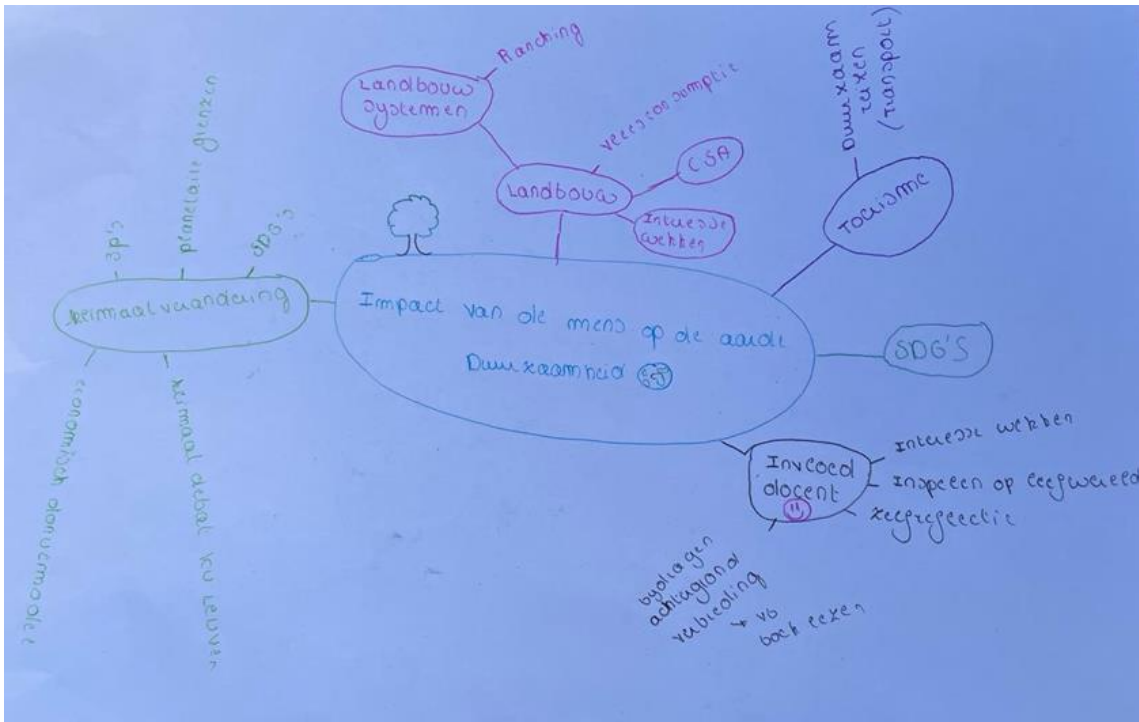 Impact van de mens op de aarde
Duurzaamheid
Landbouw
Landbouw
systemen
Ranching
vleesconsumptie
CSA
Interesse
wekken
Toerisme
Duurzaam
reizen
(transport)
SDG'S
Invloed
docent
Interesse wekken
Inspelen op leefwereld
zelfreflectie
bijdragen
achtergrond
verbreding
+ vb
boek lezen
klimaatverandering
3p's
planetaire grenzen
SDG's
economisch donutmodel
klimaat debat KU Leuven